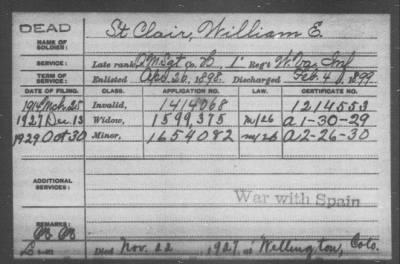 DEAD
NAME OF SOLDIER: St Clair, William E.
SERVICE: Late rank, Q M Sgt Co. L, 1" Reg't W.Va. Inf
TERM OF SERVICE: Enlisted Apr 26, 1898. Discharged Feb. 4, 1899.
DATE OF FILING. CLASS. APPLICATION NO. LAW. CERTIFICATE NO.
1914 Mch 25 Invalid, 1414068 1214553
1927 Dec 13 Widow, 1599,375 m/26 A1-30-29
1929 Oct 30 Minor, 1654082 m/26 A2-26-30
ADDITIONAL SERVICES:
War with Spain
REMARKS:
Died Nov. 22, 1927, at Wellington, Colo.